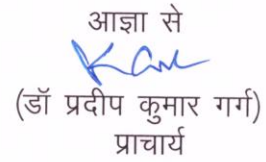 आज्ञा से
(डॉ प्रदीप कुमार गर्ग)
प्राचार्य